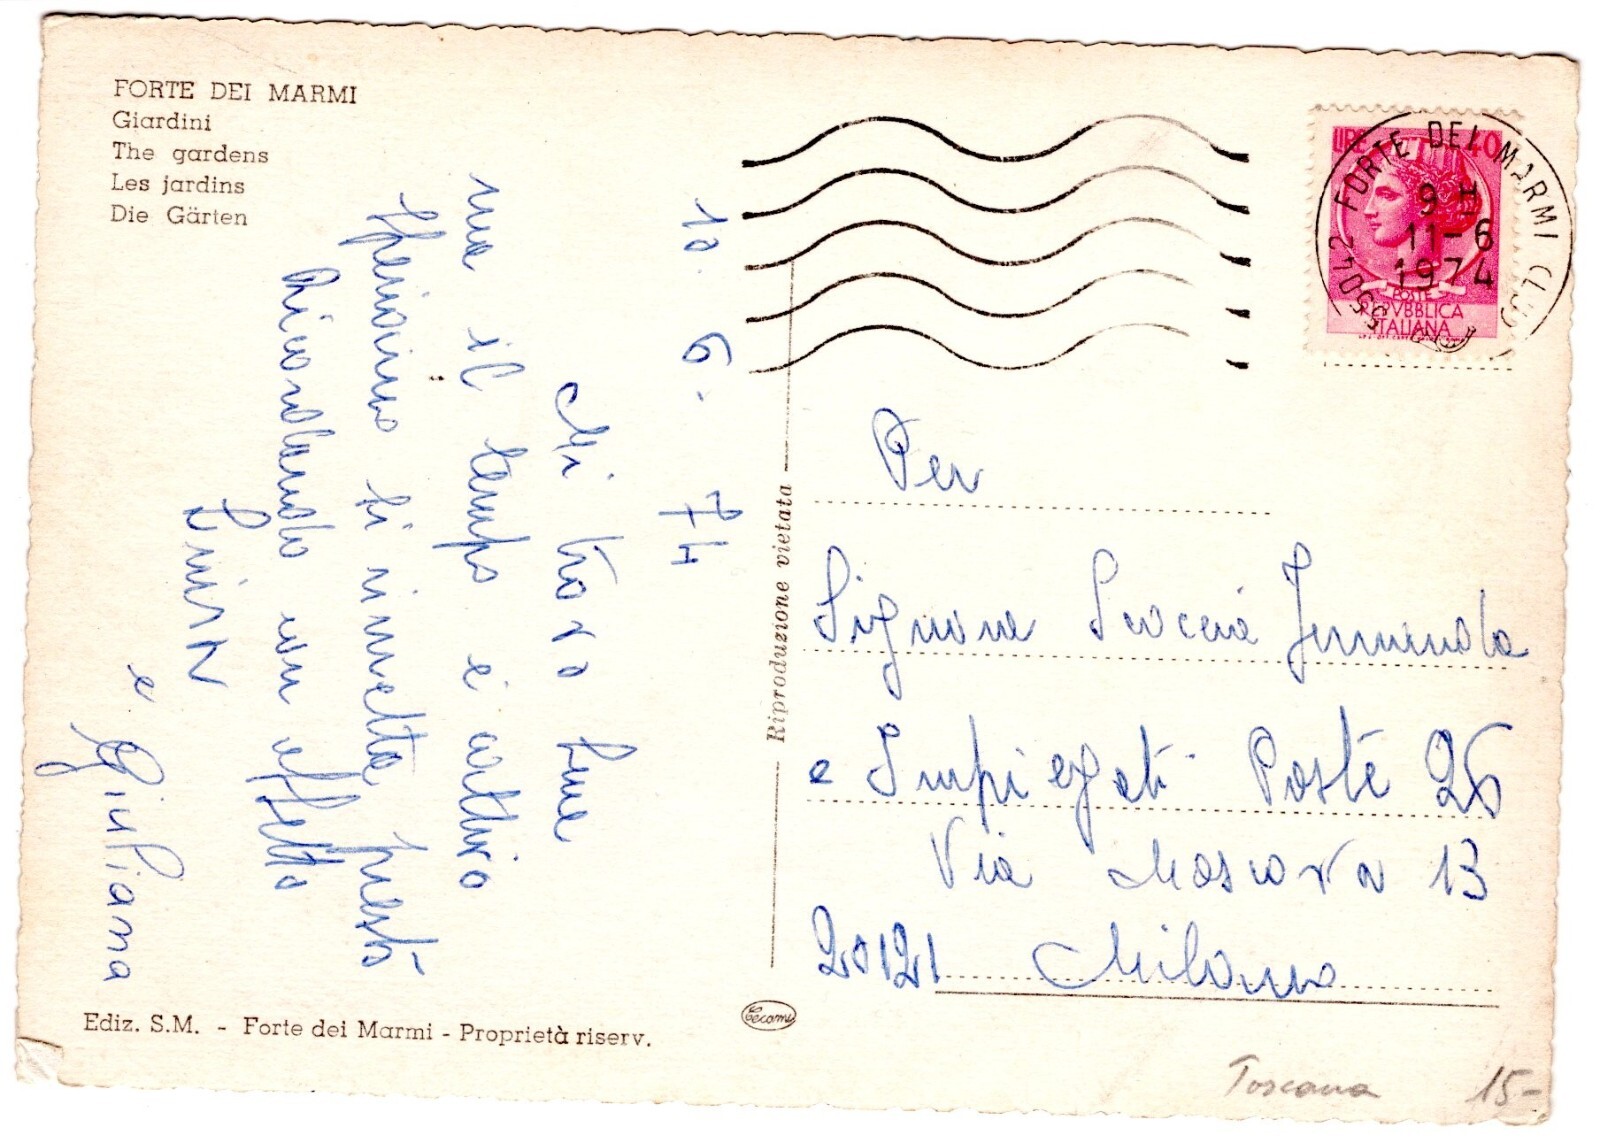 FORTE DEI MARMI
Giardini
The gardens
Les jardins
Die Gärten
10. 6. 74
Mi trovo bene
ma il tempo è cattivo
speriamo si rimetta presto
Ricordando con affetto
Luisa
e Giuliana
Ediz. S.M. - Forte dei Marmi - Proprietà riserv.
Riproduzione vietata
Tecami
LIRE 40
POSTE
REPVBBLICA
ITALIANA
55042 FORTE DEI MARMI
9 H
11-6
1974
Per
Signora
e Impiegati Poste 26
Via Moscova 13
20121 Milano
Toscana 15-